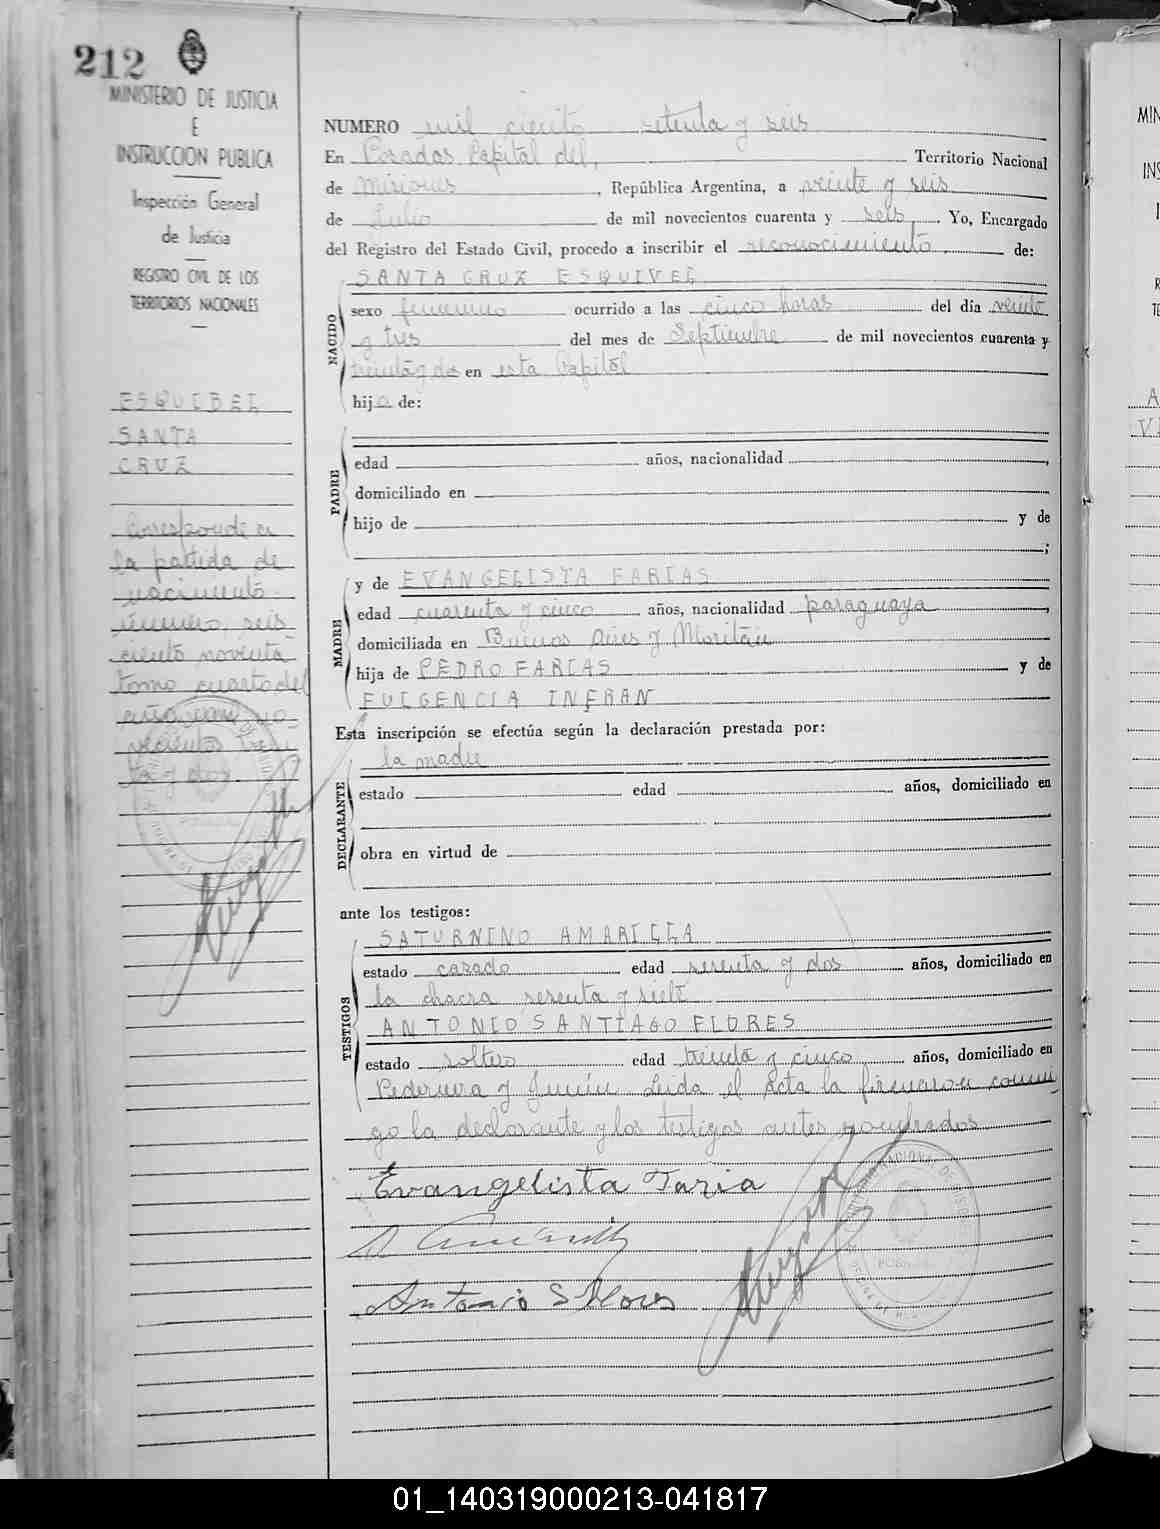 212
MINISTERIO DE JUSTICIA
E
INSTRUCCION PUBLICA
Inspección General
de Justicia
REGISTRO CIVIL DE LOS
TERRITORIOS NACIONALES
ESQUIBEL
SANTA
CRUZ
Corresponde a
la partida de
nacimiento
número seis
ciento noventa
tomo cuarto del
año mil no-
vecientos trein
ta y dos.
NUMERO mil ciento setenta y seis
En Posadas Capital del, Territorio Nacional
de Misiones, República Argentina, a veinte y seis
de Julio de mil novecientos cuarenta y seis. Yo, Encargado
del Registro del Estado Civil, procedo a inscribir el reconocimiento de:
NACIDO
SANTA CRUZ ESQUIVEL
sexo femenino ocurrido a las cinco horas del día veinte
y tres del mes de Septiembre de mil novecientos cuarenta y
treinta y dos en esta Capital
hija de:
PADRE
edad años, nacionalidad ,
domiciliado en
hijo de y de
;
MADRE
y de EVANGELISTA FARIAS
edad cuarenta y cinco años, nacionalidad paraguaya,
domiciliada en Buenos Aires y
hija de PEDRO FARIAS y de
FULGENCIA INFRAN
Esta inscripción se efectúa según la declaración prestada por:
DECLARANTE
la madre
estado edad años, domiciliado en
obra en virtud de
ante los testigos:
TESTIGOS
SATURNINO AMARILLA
estado casado edad sesenta y dos años, domiciliado en
la chacra sesenta y siete
ANTONIO SANTIAGO FLORES
estado soltero edad treinta y cinco años, domiciliado en
Pedernera y Junín Leida el Acta la firmaron conmi
go la declarante y los testigos antes nombrados
Evangelista Faria
Antonio S Flores
01_140319000213-041817